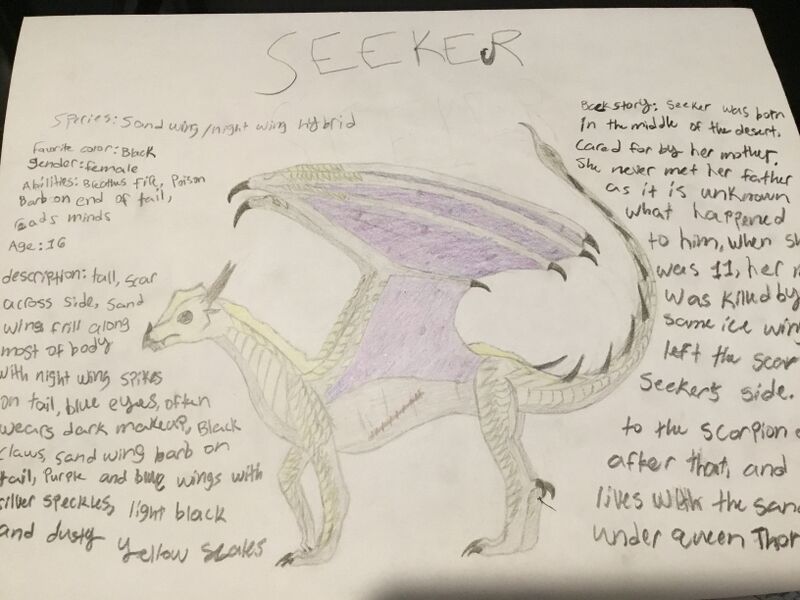 SEEKER
Species: Sand wing/night wing Hybrid
Favorite color: Black
Gender: female
Abilities: Breathes fire, Poison
Barb on end of tail,
reads minds
Age: 16
description: tall, scar
across side, sand
wing frill along
most of body
with night wing spikes
on tail, blue eyes, often
wears dark makeup, Black
claws, sand wing barb on
tail, Purple and blue wings with
silver speckles, light black
and dusty yellow scales
Back story: Seeker was born
in the middle of the desert,
cared for by her mother.
She never met her father
as it is unknown
what happened
to him, when
was 11, her
was killed by
same ice wing
left the scar
Seeker's side.
to the scorpion
after that, and
lives with the
under queen